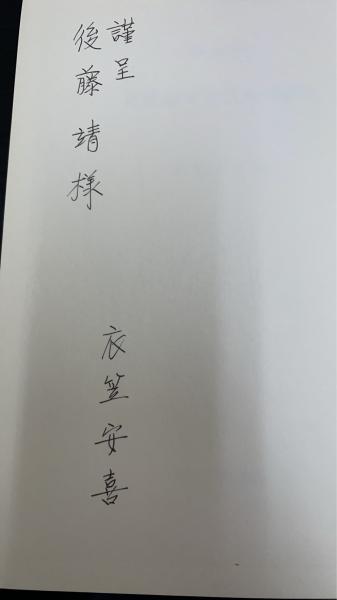 謹呈
後藤靖様
衣笠安喜